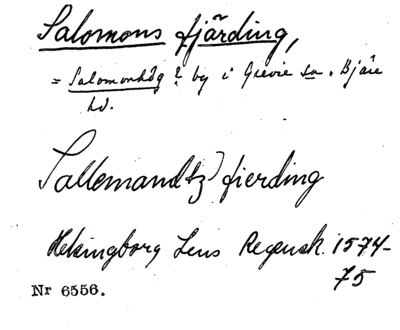 Salomons fjärding,
= Salomonhög? by i Grevie sn. Bjäre
hd.
Sallemandtz fierding
Helsingborg Lens Regensk. 1574-
75
Nr 6556.